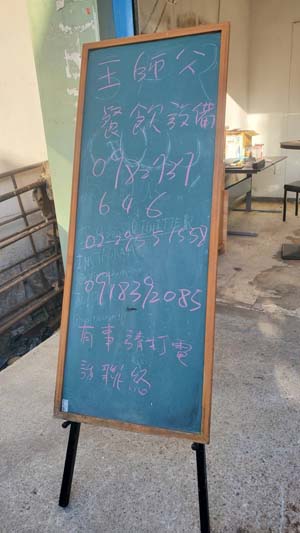 王師公
餐飲設備
0982937
646
02-29551558
0918392085
有事請打電
話聯絡